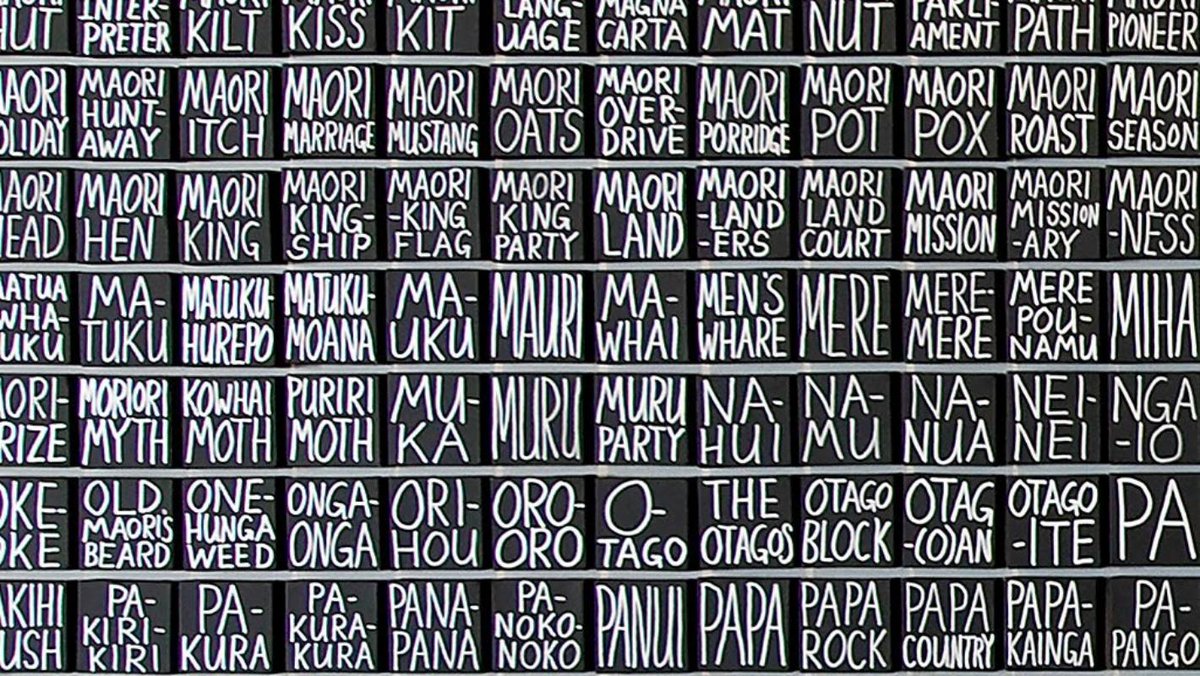 HUT
INTER-
PRETER
KILT
KISS
KIT
LANG-
UAGE
MAGNA
CARTA
MAT
NUT
PARLI-
AMENT
PATH
PIONEER
MAORI
OLIDAY
MAORI
HUNT-
AWAY
MAORI
ITCH
MAORI
MARRIAGE
MAORI
MUSTANG
MAORI
OATS
MAORI
OVER-
DRIVE
MAORI
PORRIDGE
MAORI
POT
MAORI
POX
MAORI
ROAST
MAORI
SEASON
MAORI
EAD
MAORI
HEN
MAORI
KING
MAORI
KING-
SHIP
MAORI
-KING
FLAG
MAORI
KING
PARTY
MAORI
LAND
MAORI
-LAND
-ERS
MAORI
LAND
COURT
MAORI
MISSION
MAORI
MISSION
-ARY
MAORI
-NESS
ATUA
WHA-
UKU
MA-
TUKU
MATUKU-
HUREPO
MATUKU-
MOANA
MA-
UKU
MAURI
MA-
WHAI
MEN'S
WHARE
MERE
MERE-
MERE
MERE
POU-
NAMU
MIHA
ORI-
RIZE
MORIORI
MYTH
KOWHAI
MOTH
PURIRI
MOTH
MU-
KA
MURU
MURU
PARTY
NA-
HUI
NA-
MU
NA-
NUA
NEI-
NEI
NGA
-IO
OKE-
OKE
OLD
MAORI'S
BEARD
ONE-
HUNGA
WEED
ONGA-
ONGA
ORI-
HOU
ORO-
ORO
O-
TAGO
THE
OTAGOS
OTAGO
BLOCK
OTAG
-(O)AN
OTAGO
-ITE
PA
AKIHI
USH
PA-
KIRI-
KIRI
PA-
KURA
PA-
KURA-
KURA
PANA-
PANA
PA-
NOKO-
NOKO
PANUI
PAPA
PAPA
ROCK
PAPA
COUNTRY
PAPA-
KAINGA
PA-
PANGO